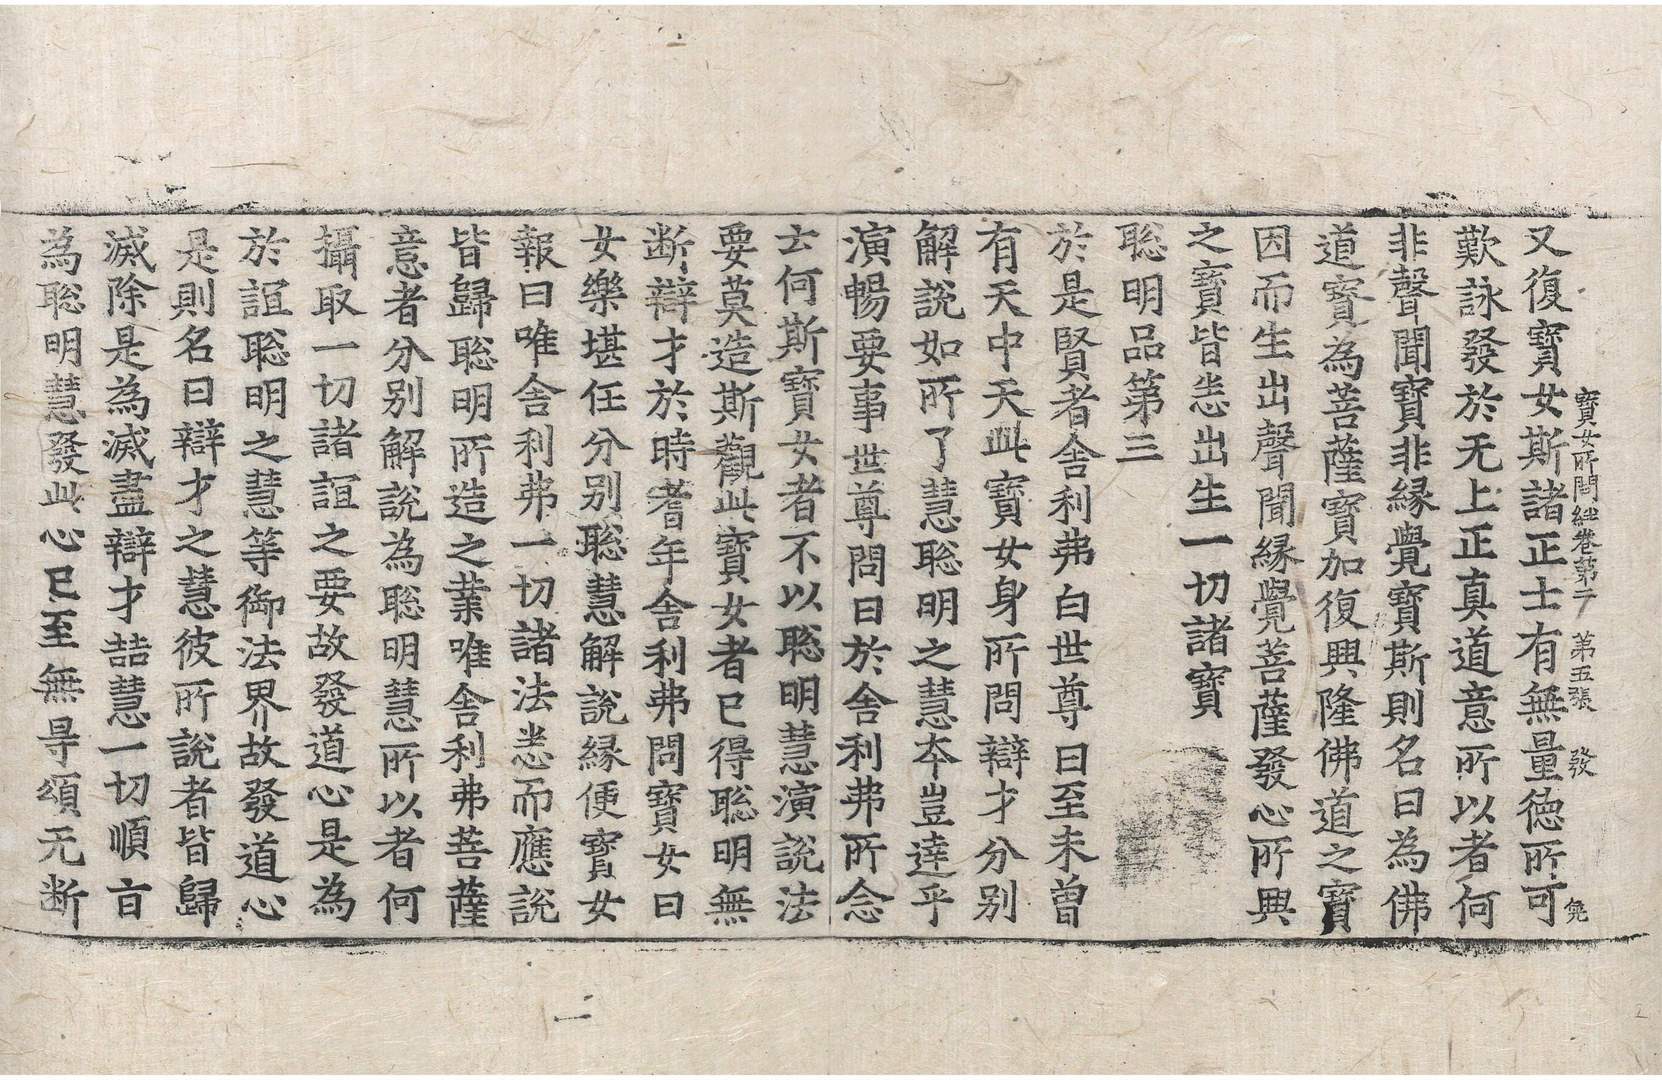 寶女所問經卷第二 第五張 發
又復寶女斯諸正士有無量德所可
歎詠發於无上正真道意所以者何
非聲聞寶非緣覺寶斯則名曰為佛
道寶為菩薩寶加復興隆佛道之寶
因而生出聲聞緣覺菩薩發心所興
之寶皆悉出生一切諸寶
聡明品第三
於是賢者舍利弗白世尊曰至未曽
有天中天此寶女身所問辯才分别
解說如所了慧聡明之慧本豈達乎
演暢要事世尊問曰於舍利弗所念
云何斯寶女者不以聡明慧演說法
要莫造斯觀此寶女者已得聡明無
断辯才於時耆年舍利弗問寶女曰
女樂堪任分别聡慧解說緣便寶女
報曰唯舍利弗一切諸法悉而應說
皆歸聡明所造之業唯舍利弗菩薩
意者分别解說為聡明慧所以者何
攝取一切諸誼之要故發道心是為
於誼聡明之慧等御法界故發道心
是則名曰辯才之慧彼所說者皆歸
滅除是為滅盡辯才喆慧一切順亩
為聡明慧發此心已至無㝵頌无断
二